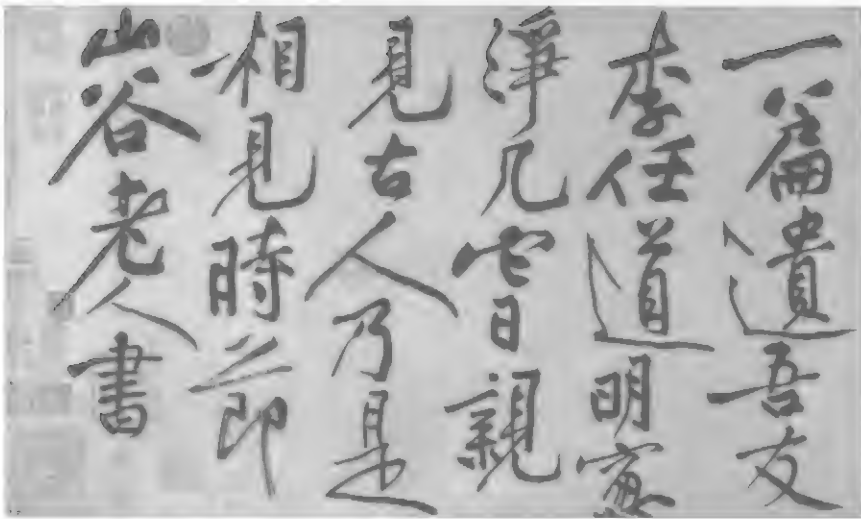 一篇遺吾友
李任道明窻
淨几它日親
見古人乃是
相見時節
山谷老人書